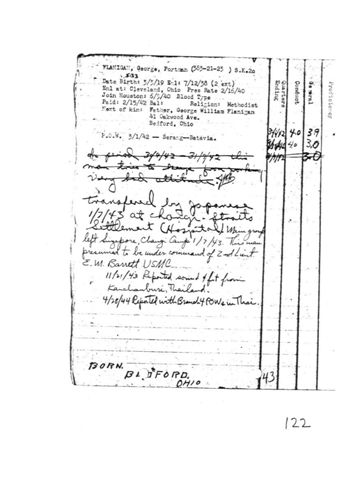 FLANIGAN, George, Fortman (383-21-23 ) S.K.2c
Date Birth: 3/3/19 E-1: 7/12/38 (2 ext)
Enl at: Cleveland, Ohio Pres Rate 2/16/40
Join Houston: 6/5/40 Blood Type
Paid: 2/15/42 Bal: Religion: Methodist
Next of kin: Father, George William Flanigan
41 Oakwood Ave.
Bedford, Ohio
P.O.W. 3/1/42 — Serang-Batavia.
transfered by japanese
1/7/43 at changi, straits
Settlement (Hospital) Main group
left Singapore, Changi Camp 1/7/43. This man
presumed to be under command of 2nd Lieut
E. M. Barrett USMC
11/21/43 Reported sound & fit from
Kanchanburi, Thailand.
4/28/44 Reported with Branch 4 POWs in Thai.
BORN.
BEDFORD,
OHIO
Quarters
Ending
Conduct
4.0 3.9
4.0 3.0
3.0
43
122